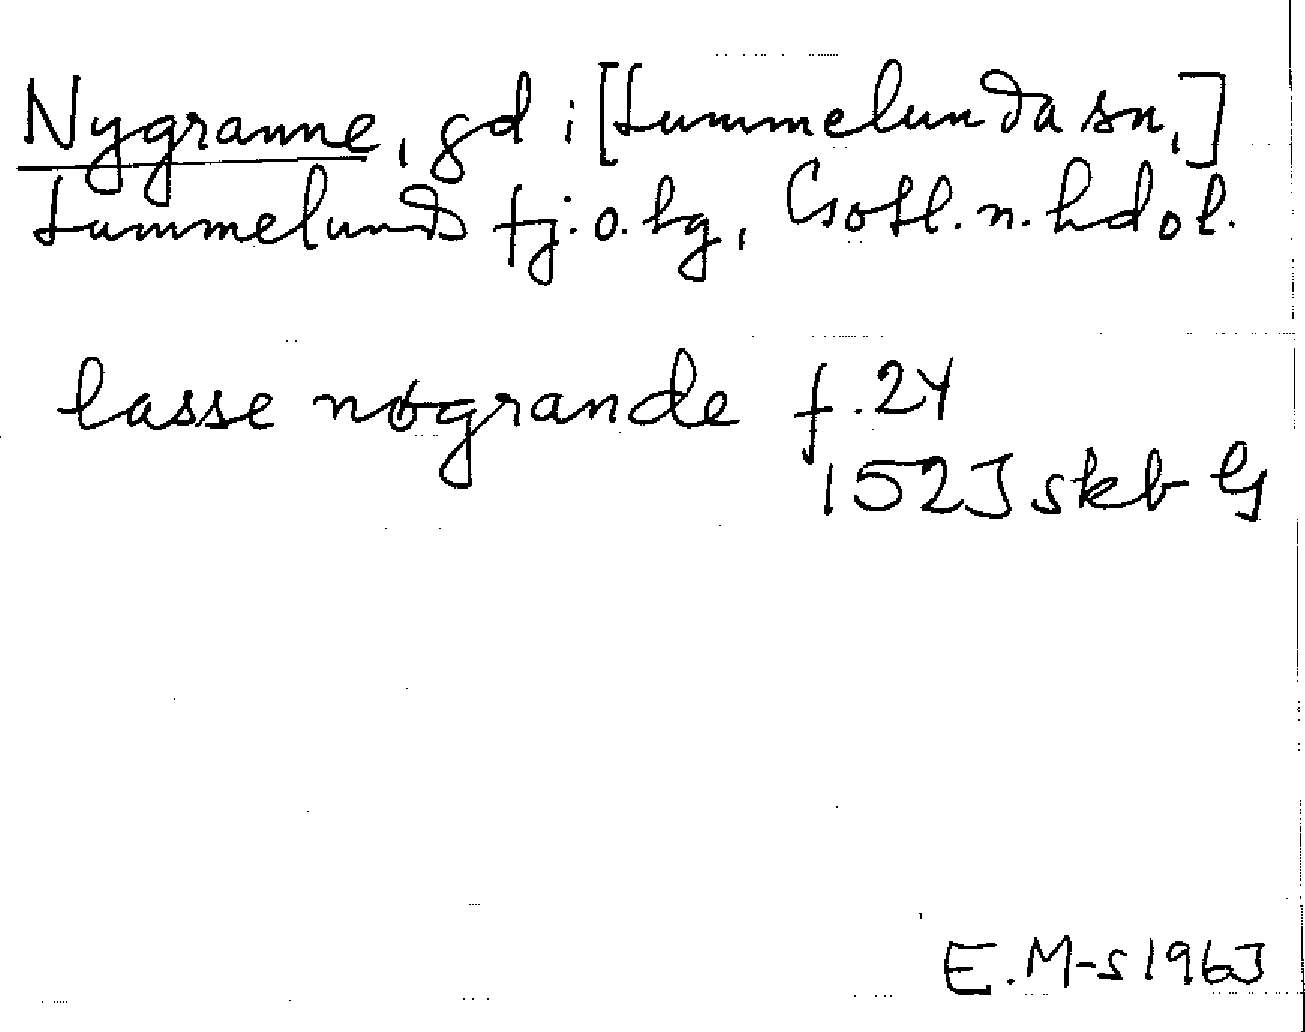 Nygranne, gd i [Lummelunda sn,]
Lummelunds tj. o. hg, Gotl. n. hd o l.
lasse nøgrande f. 24
1523 skb G
E. M-s 1963